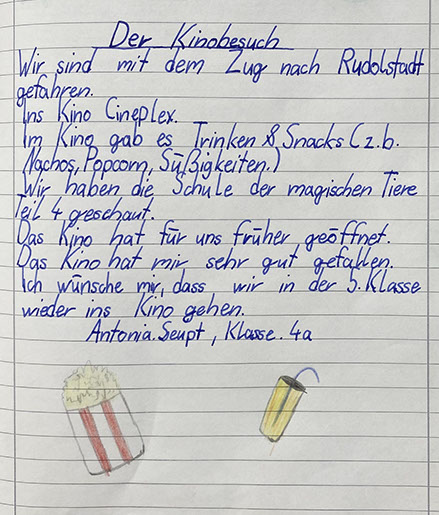 Der Kinobesuch
Wir sind mit dem Zug nach Rudolstadt
gefahren.
Ins Kino Cineplex.
Im Kino gab es Trinken & Snacks (z.b.
Nachos, Popcorn, Süßigkeiten.)
Wir haben die Schule der magischen Tiere
Teil 4 geschaut.
Das Kino hat für uns früher geöffnet.
Das Kino hat mir sehr gut gefallen.
Ich wünsche mir, dass wir in der 5. Klasse
wieder ins Kino gehen.
Antonia Seupt, Klasse. 4a